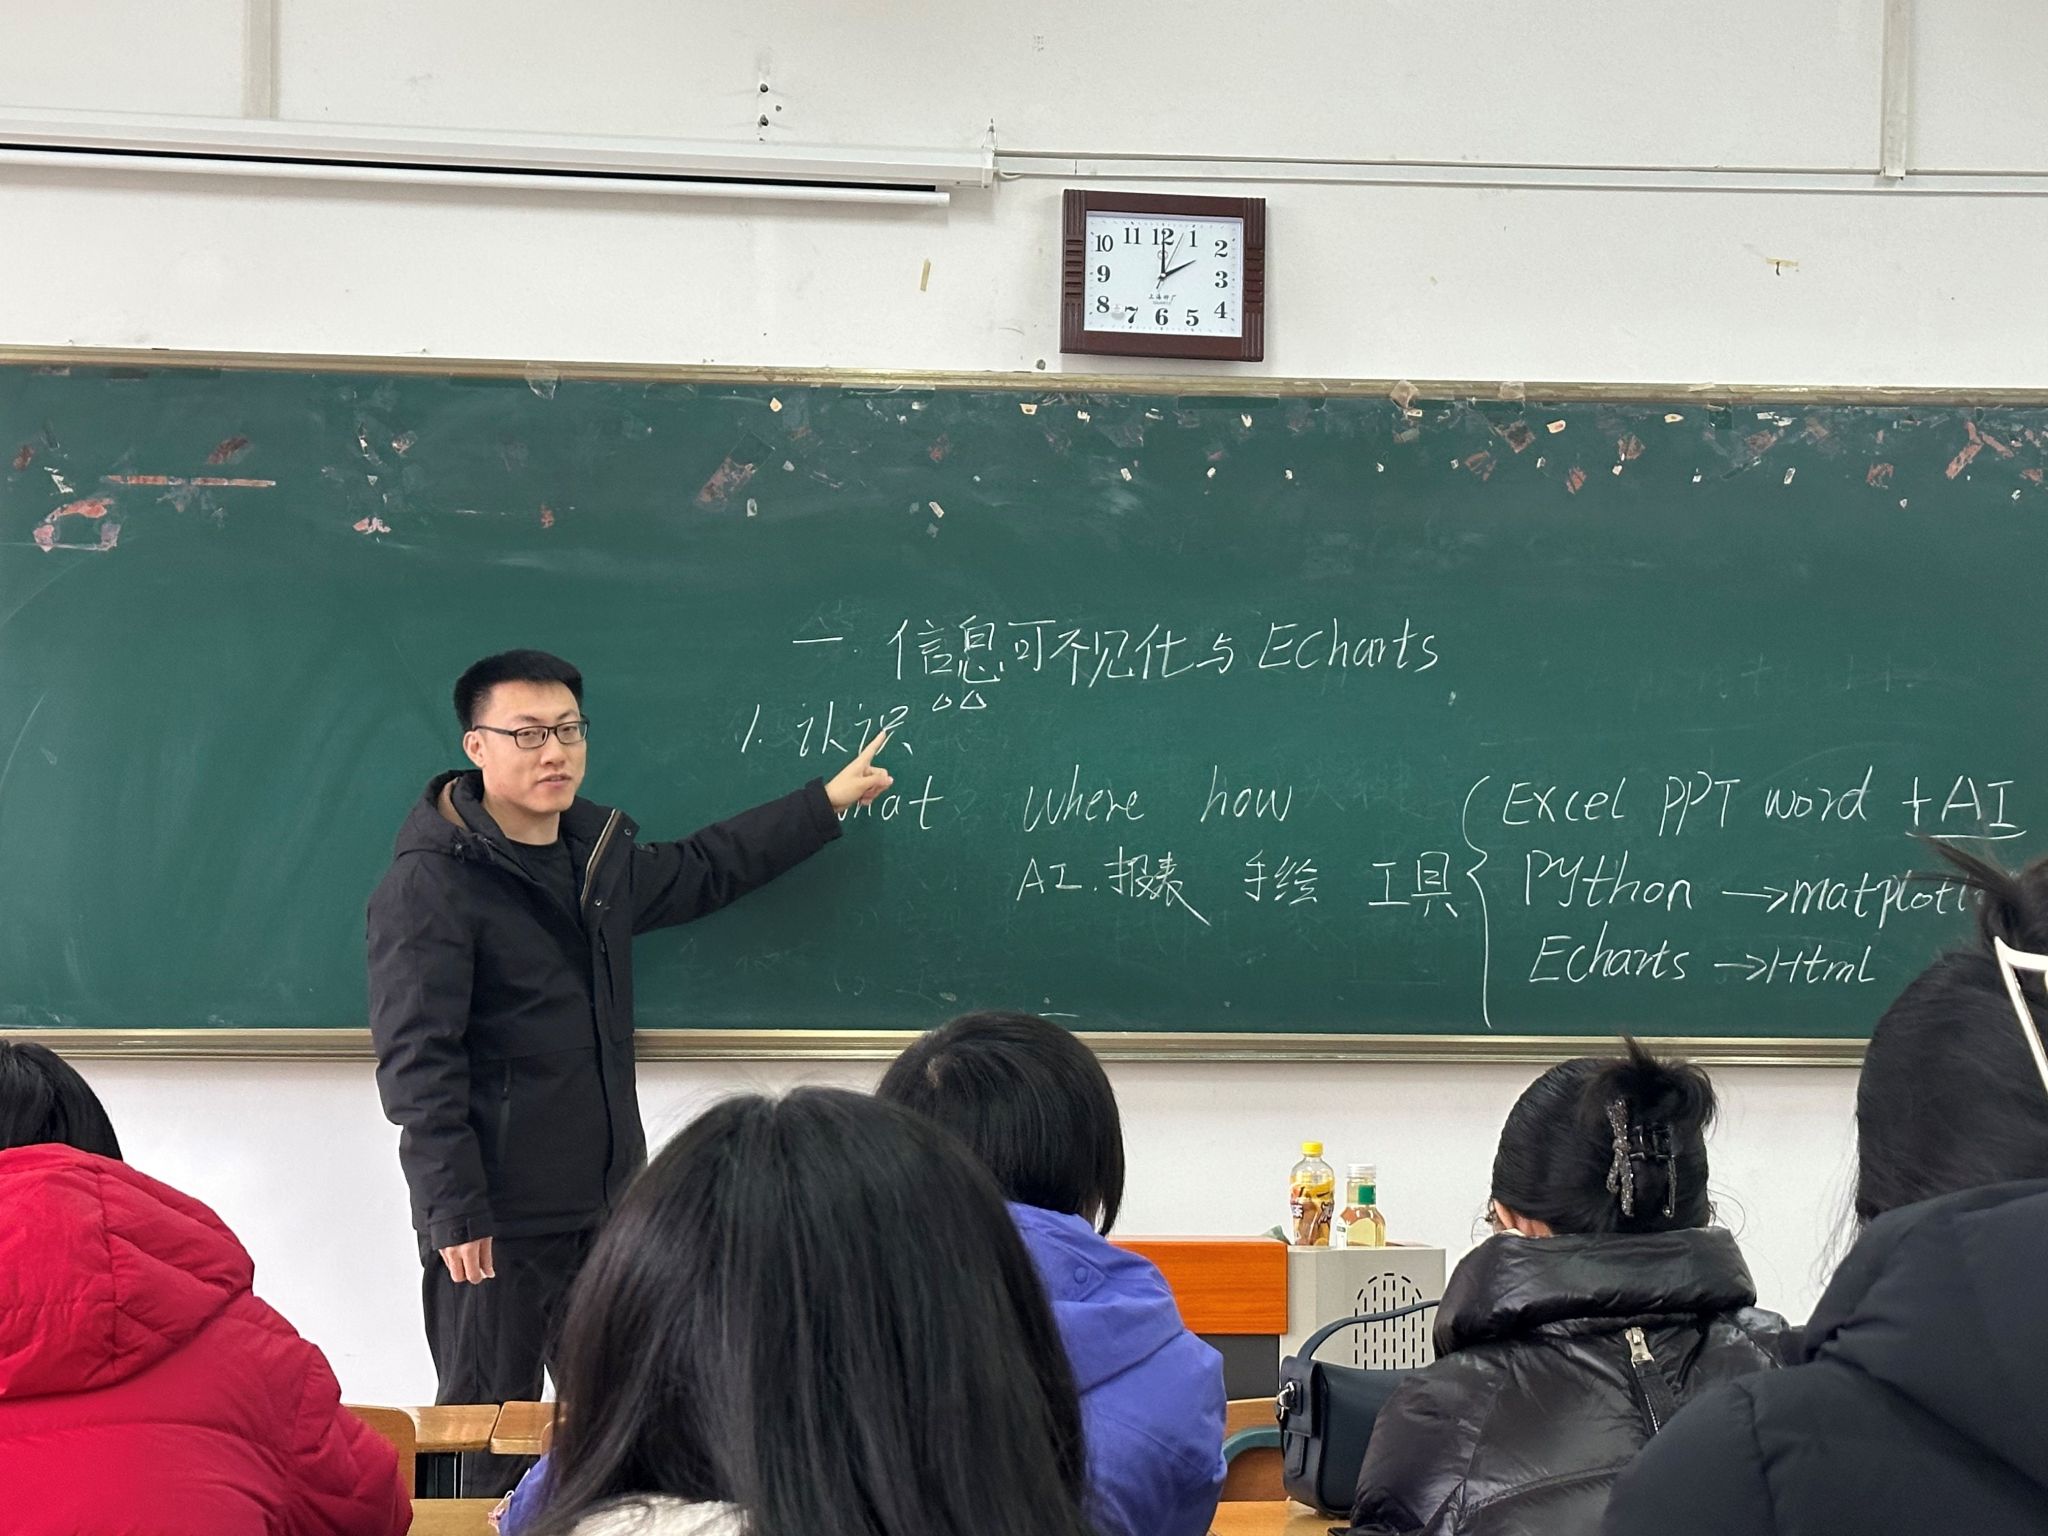 10 11 12 1 2
9 3
8 7 6 5 4
一. 信息可视化与 Echarts
1. 认识
what where how
AI. 报表 手绘 工具
Excel PPT word +AI
Python →matplotl
Echarts →Html